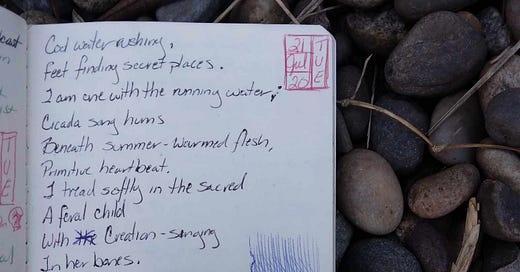 Cool water rushing,
Feet finding secret places.
I am one with the running water;
Cicada song hums
Beneath summer-warmed flesh,
Primitive heartbeat.
I tread softly in the sacred
A feral child
With Creation-singing
In her bones.
21
Jul
20
TUE
TUE